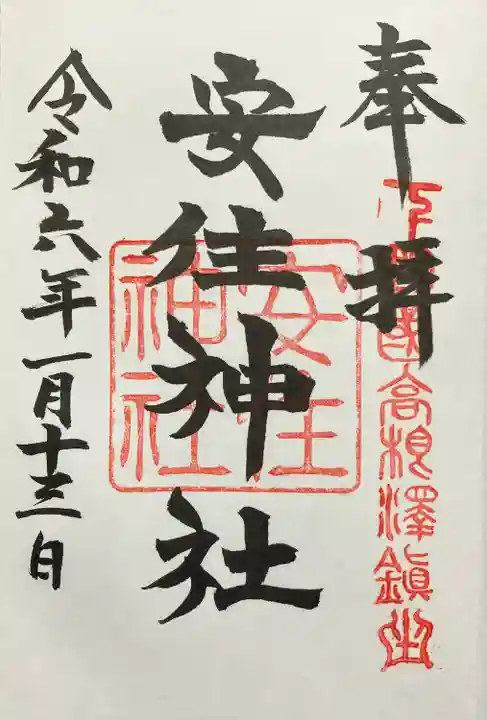 奉拝
下野國高根澤鎮座
安住神社
安住
神社
令和六年一月十三日